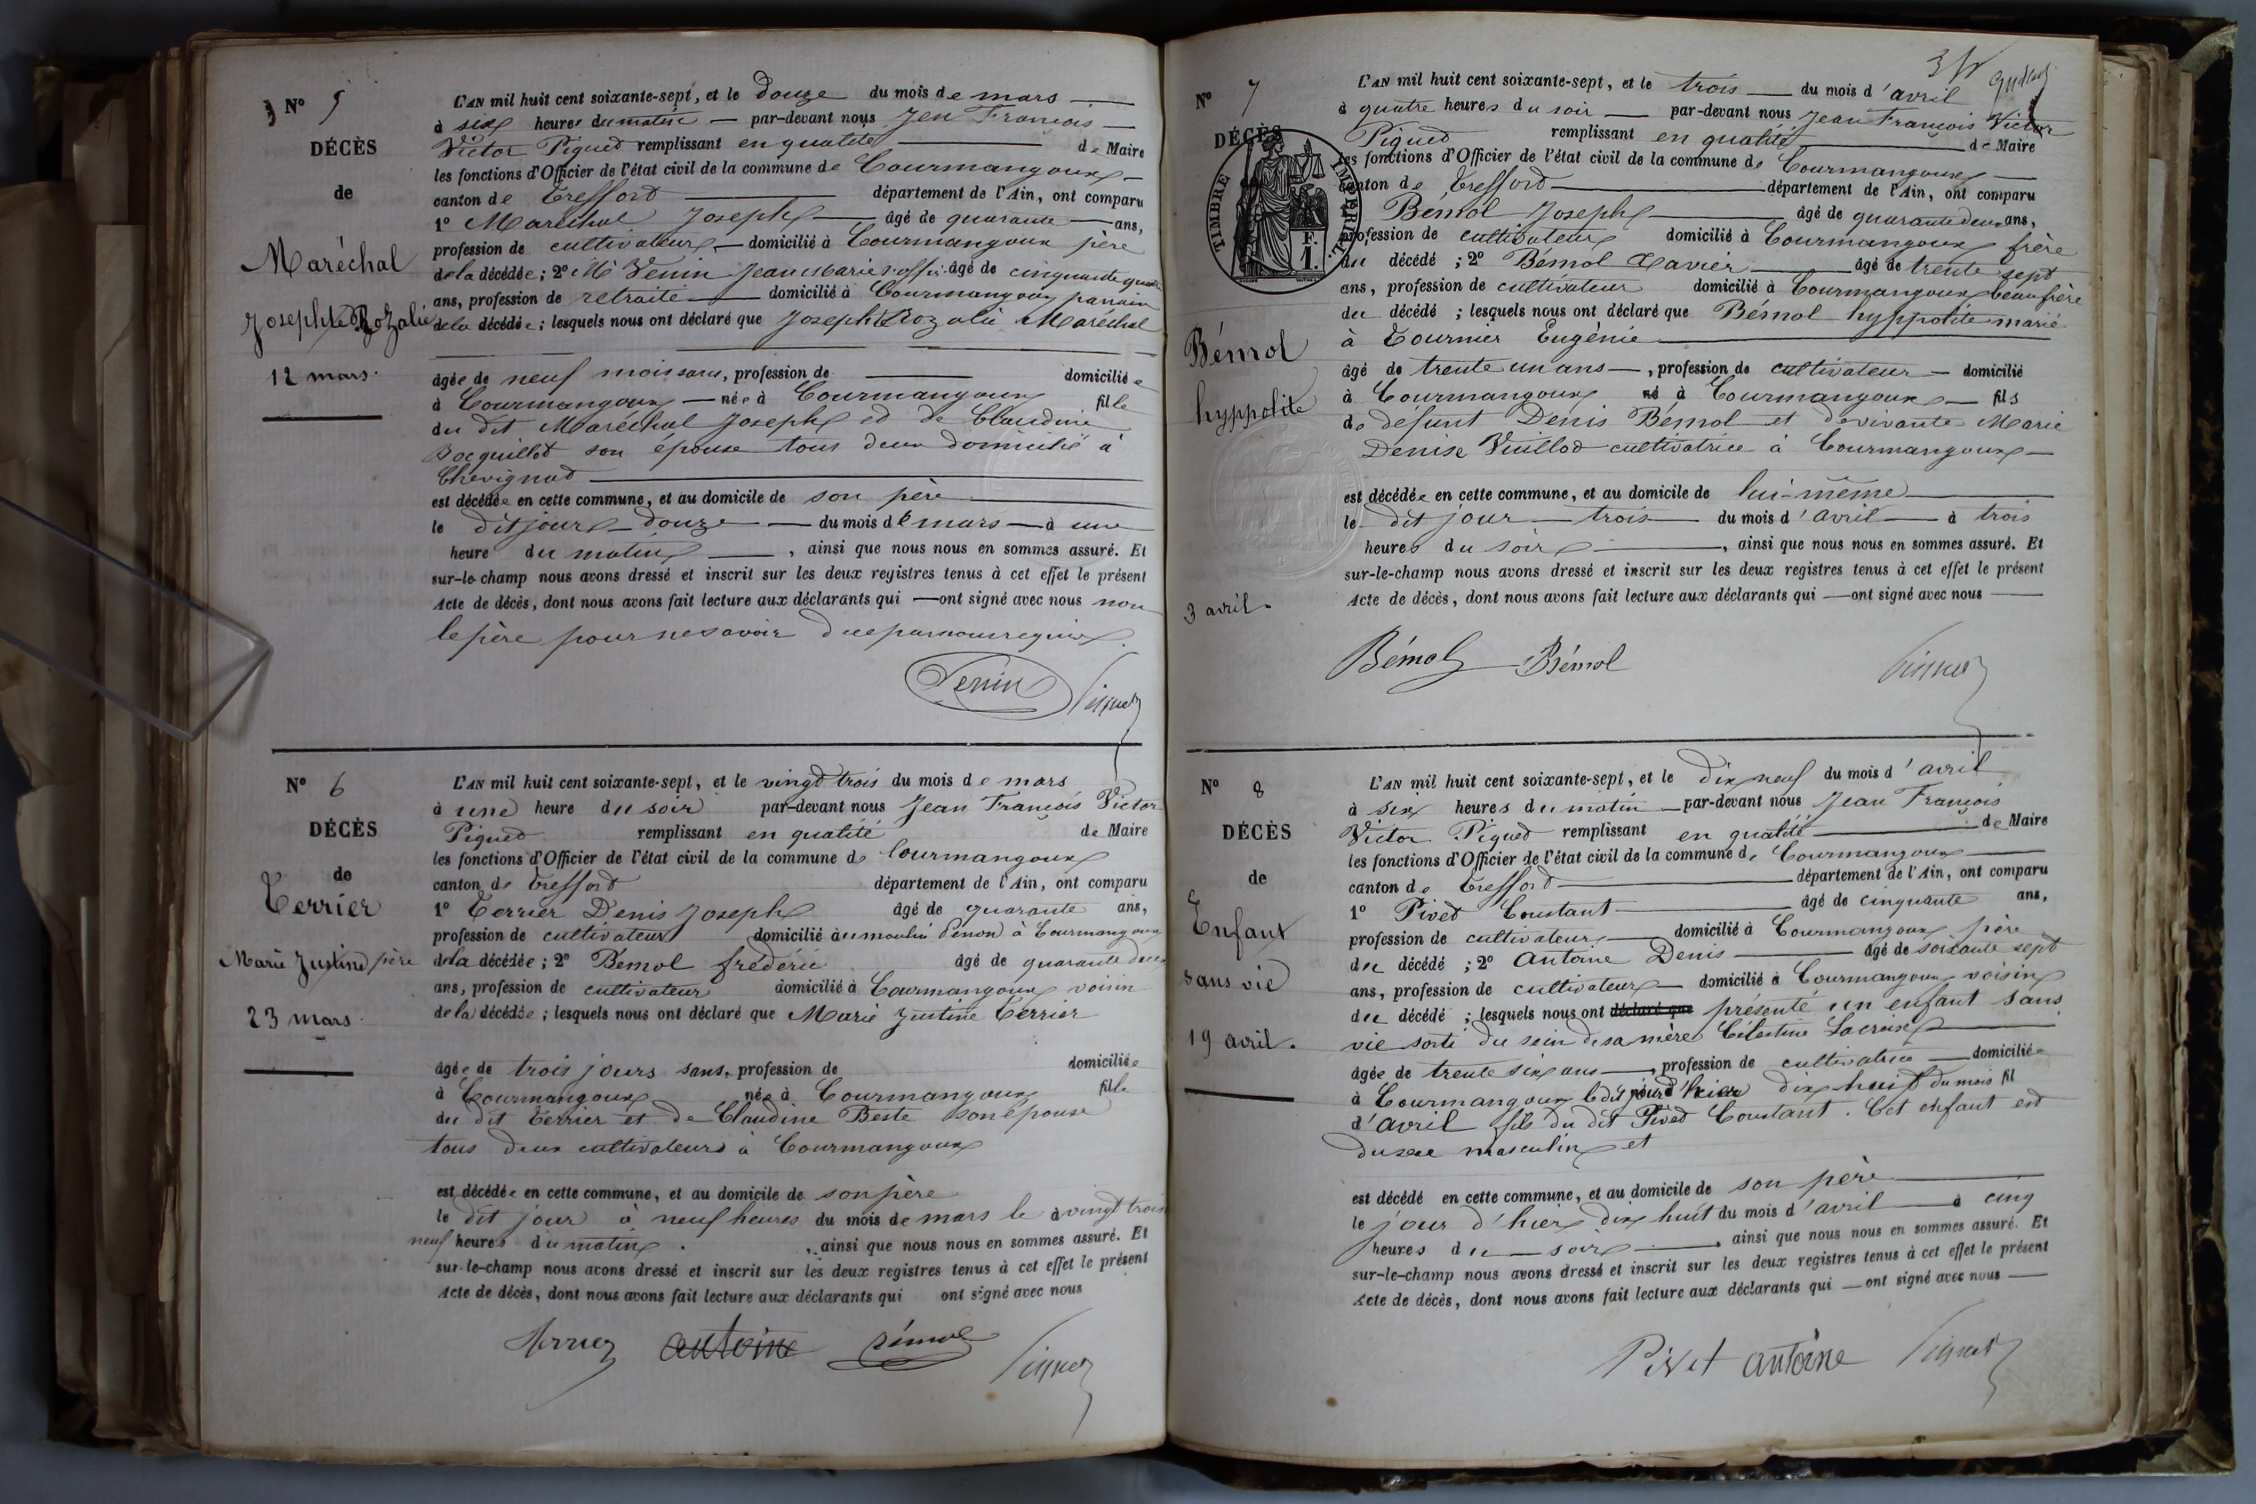 N° 5
DÉCÈS
de
Maréchal
Josephte Rozalie
12 mars.
L'AN mil huit cent soixante-sept, et le douze du mois de mars
à six heures du matin par-devant nous Jen François
Victor Piqued remplissant en qualité de Maire
les fonctions d'Officier de l'état civil de la commune de Courmangoux
canton de Trefford département de l'Ain, ont comparu
1° Maréchal Joseph âgé de quarante ans,
profession de cultivateur domicilié à Courmangoux père
de la décédée ; 2° Mr Venin Jean Marie offi. âgé de cinquante quatre
ans, profession de retraité domicilié à Courmangoux parrain
de la décédée ; lesquels nous ont déclaré que Josephte Rozalie Maréchal
âgée de neuf mois sans, profession de domiciliée
à Courmangoux née à Courmangoux fille
du dit Maréchal Joseph et de Claudine
Bocquillod son épouse tous deux domicilié à
Chevignad
est décédée en cette commune, et au domicile de son père
le dit jour douze du mois de mars à une
heure du matin , ainsi que nous nous en sommes assuré. Et
sur-le-champ nous avons dressé et inscrit sur les deux registres tenus à cet effet le présent
Acte de décès, dont nous avons fait lecture aux déclarants qui ont signé avec nous non
le père pour ne savoir de ce par nous requis
Venin Piquet
N° 6
DÉCÈS
de
Terrier
Marie Justine
23 mars.
L'AN mil huit cent soixante-sept, et le vingt trois du mois de mars
à une heure du soir par-devant nous Jean François Victor
Piqued remplissant en qualité de Maire
les fonctions d'Officier de l'état civil de la commune de Courmangoux
canton de Trefford département de l'Ain, ont comparu
1° Terrier Denis Joseph âgé de quarante ans,
profession de cultivateur domicilié au moulin Penon à Courmangoux
père de la décédée ; 2° Bémol fréderic âgé de quarante deux
ans, profession de cultivateur domicilié à Courmangoux voisin
de la décédée ; lesquels nous ont déclaré que Marie Justine Terrier
âgée de trois jours sans, profession de domiciliée
à Courmangoux née à Courmangoux fille
du dit Terrier et de Claudine Beste son épouse
tous deux cultivateurs à Courmangoux
est décédée en cette commune, et au domicile de son père
le dit jour à neuf heures du mois de mars le à vingt trois
neuf heures du matin . , ainsi que nous nous en sommes assuré. Et
sur-le-champ nous avons dressé et inscrit sur les deux registres tenus à cet effet le présent
Acte de décès, dont nous avons fait lecture aux déclarants qui ont signé avec nous
antoine Bémol Piquet
N° 7
DÉCÈS
TIMBRE IMPÉRIAL
F.
1.
Bémol
hyppolite
3 avril.
L'AN mil huit cent soixante-sept, et le trois du mois d'avril
à quatre heures du soir par-devant nous Jean François Victor
Piqued remplissant en qualité de Maire
les fonctions d'Officier de l'état civil de la commune de Courmangoux
canton de Trefford département de l'Ain, ont comparu
Bémol Joseph âgé de quarante deux ans,
profession de cultivateur domicilié à Courmangoux frère
du décédé ; 2° Bémol Xavier âgé de trente sept
ans, profession de cultivateur domicilié à Courmangoux beau frère
du décédé ; lesquels nous ont déclaré que Bémol hyppolite marié
à Tournier Eugénie
âgé de trente un ans , profession de cultivateur domicilié
à Courmangoux né à Courmangoux fils
de défunt Denis Bémol et de vivante Marie
Denise Vuillod cultivatrice à Courmangoux
est décédée en cette commune, et au domicile de lui-même
le dit jour trois du mois d'avril à trois
heures du soir , ainsi que nous nous en sommes assuré. Et
sur-le-champ nous avons dressé et inscrit sur les deux registres tenus à cet effet le présent
Acte de décès, dont nous avons fait lecture aux déclarants qui ont signé avec nous
Bémol Bémol Piquet
N° 8
DÉCÈS
de
Enfant
sans vie
19 avril.
L'AN mil huit cent soixante-sept, et le dix neuf du mois d'avril
à six heures du matin par-devant nous Jean François
Victor Piqued remplissant en qualité de Maire
les fonctions d'Officier de l'état civil de la commune de Courmangoux
canton de Trefford département de l'Ain, ont comparu
1° Pived Constant âgé de cinquante ans,
profession de cultivateur domicilié à Courmangoux père
du décédé ; 2° Antoine Denis âgé de soixante sept
ans, profession de cultivateur domicilié à Courmangoux voisin
du décédé ; lesquels nous ont déclaré que présenté un enfant sans
vie sorti du sein de sa mère Célestine Lacroix
âgée de trente six ans , profession de cultivatrice domiciliée
à Courmangoux le dit jour d'hier dix huit du mois fil
d'avril fils du dit Pived Constant. Cet enfant est
du sexe masculin et
est décédé en cette commune, et au domicile de son père
le jour d'hier dix huit du mois d'avril à cinq
heures du soir , ainsi que nous nous en sommes assuré. Et
sur-le-champ nous avons dressé et inscrit sur les deux registres tenus à cet effet le présent
Acte de décès, dont nous avons fait lecture aux déclarants qui ont signé avec nous
Pivet antoine Piquet